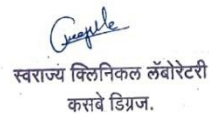 स्वराज्य क्लिनिकल लॅबोरेटरी
कसबे डिग्रज.